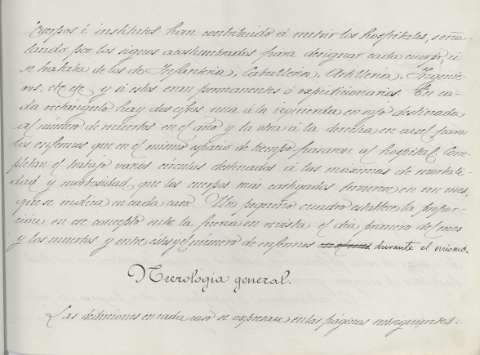 Cuerpos é institutos han contribuido á nutrir los hospitales, seña-
lando por los signos acostumbrados para designar cada cuerpo, si
se trataba de los de Infantería, Caballería, Artillería, Ingenie-
ros, etc etc, y si estos eran permanentes ó expedicionarios. En ca-
da rectángulo hay dos cifras una á la izquierda en rojo destinada
al número de muertos en el año y la otra á la derecha en azul para
los enfermos que en el mismo espacio de tiempo pasaron al hospital. Com-
pletan el trabajo varios círculos destinados á las máximas de mortali-
dad y morbosidad que los cuerpos más castigados tuvieron en un mes,
que se indica en cada caso. Un pequeño cuadro establece la propor-
ción en este concepto entre la fuerza en revista el dia primero de
y los muertos y entre esta y el número de enfermos durante el mismo.
Necrología general.
Las defunciones en cada año se expresan en las páginas